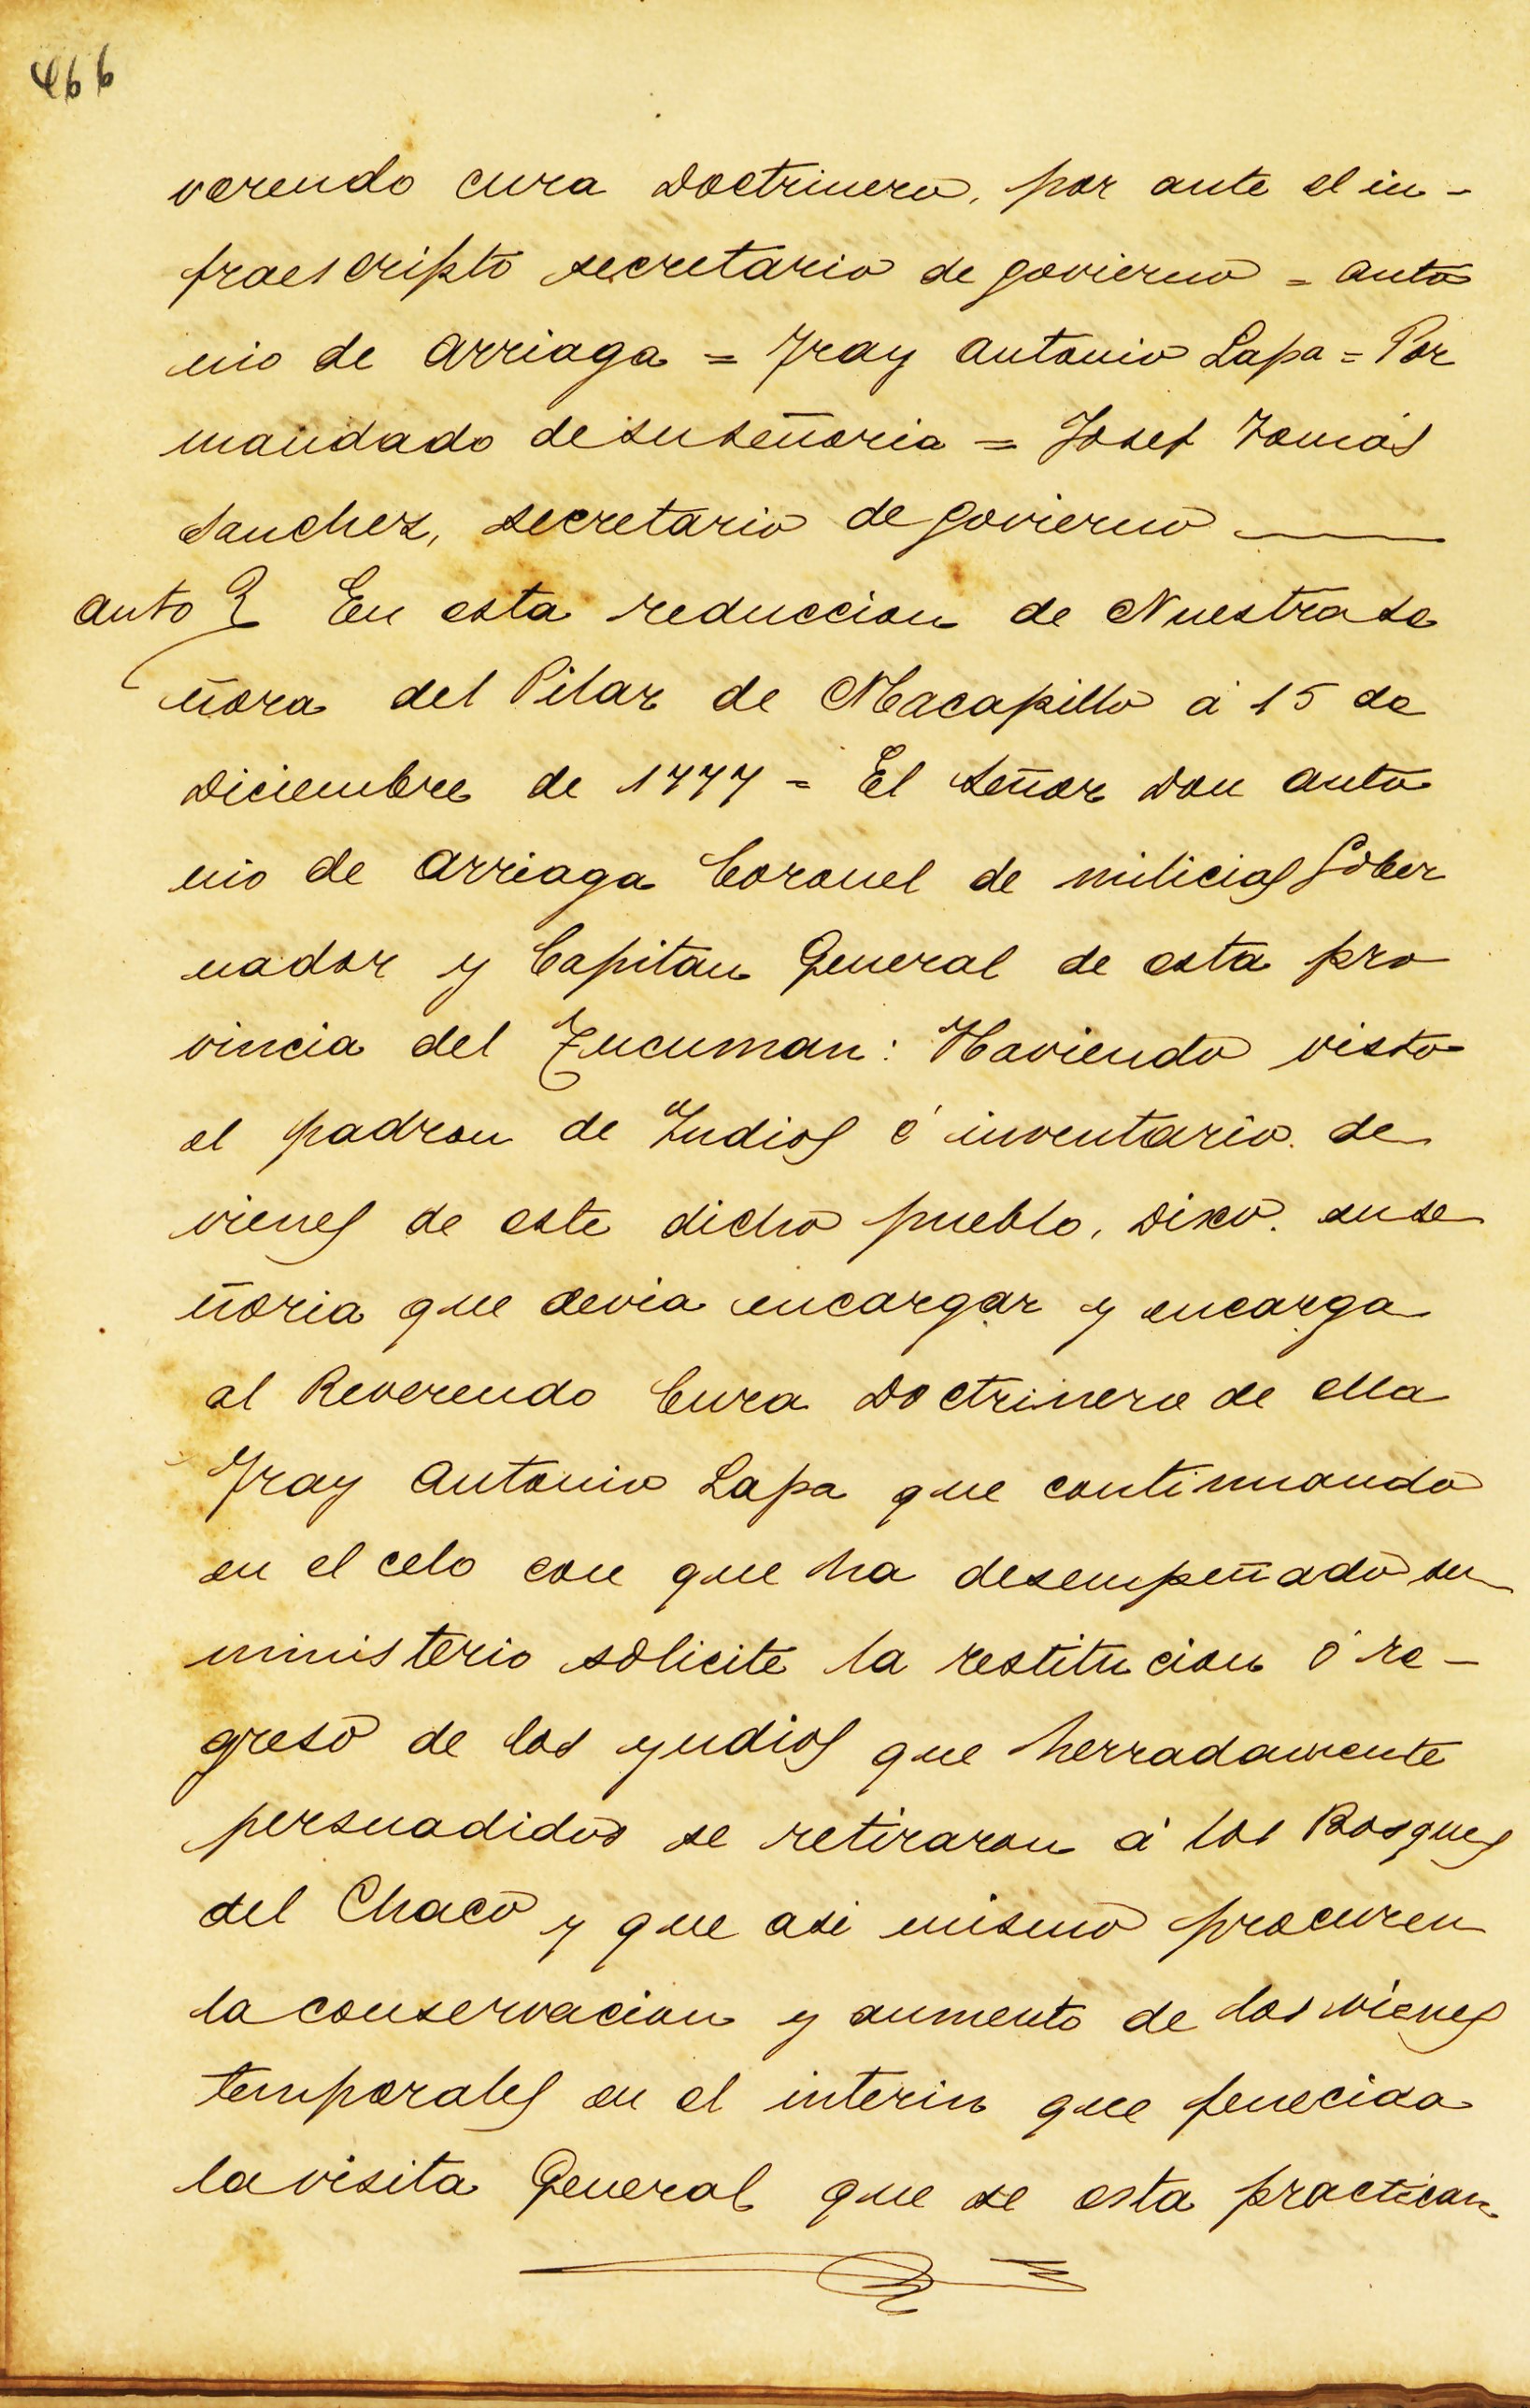 466
verendo cura Doctrinero, por ante el in-
fraescripto secretario de govierno = Anto
nio de Arriaga = Fray Antonio Lapa = Por
mandado de su señoria = Josef Tomás
Sanchez, secretario de govierno
Auto } En esta reduccion de Nuestra Se
ñora del Pilar de Macapillo á 15 de
Diciembre de 1777 = El Señor Don Anto
nio de Arriaga Coronel de milicias Gober
nador y Capitan General de esta pro
vincia del Tucuman: Haviendo visto
el padron de Indios é inventario de
vienes de este dicho pueblo, Dixo. su se
ñoria que devia encargar y encarga
al Reverendo Cura Doctrinero de ella
Fray Antonio Lapa que continuando
en el celo con que ha desempeñado su
ministerio solicite la restitucion ó re-
greso de los yndios que herradamente
persuadidos se retiraron á los Bosques
del Chaco y que asi mismo procuren
la conservacion y aumento de los vienes
temporales en el interin que fenecida
la visita General que se esta practican